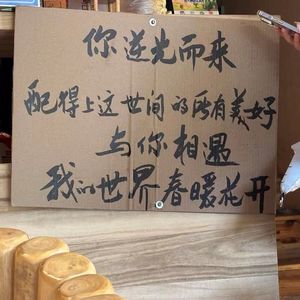 你逆光而来
配得上这世间的所有美好
与你相遇
我的世界春暖花开